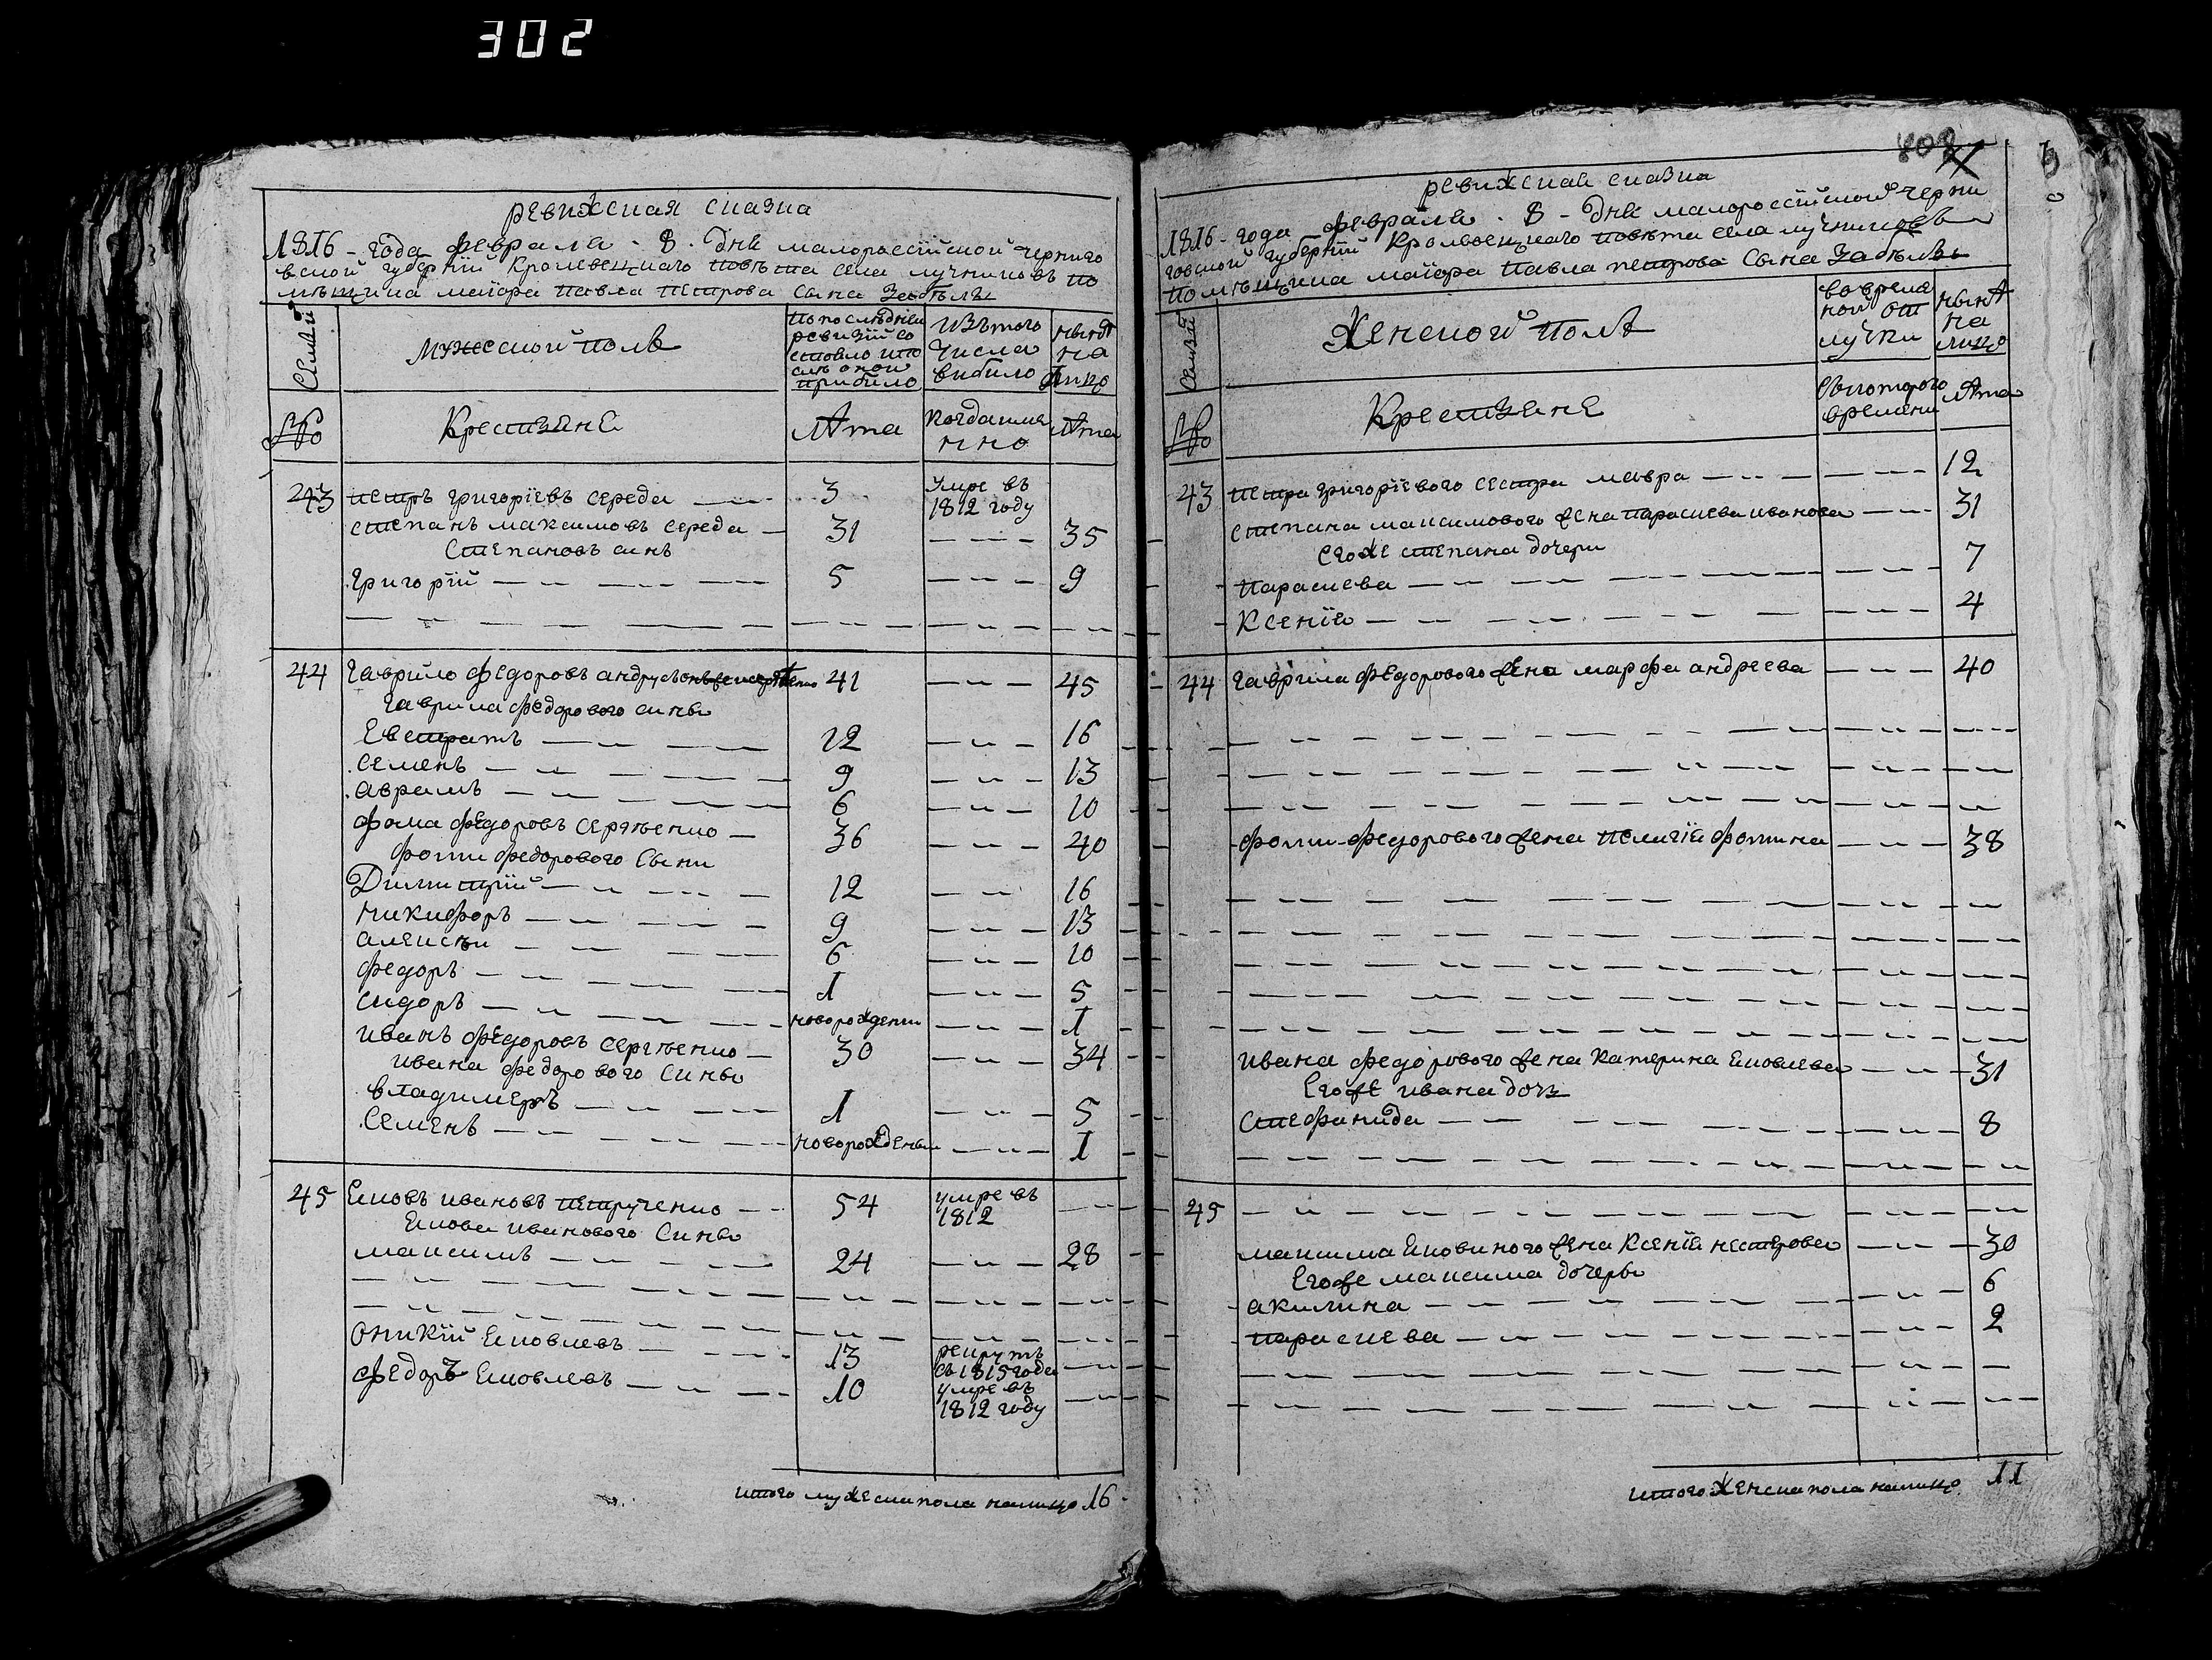 302
ревижская сказка
1816 - года февраля · 8 · дня малороссійской черниго
вской губерніи Кролевецкаго повѣта села лучниковъ по
мѣщика маіора Павла Петрова сына Забѣлы
Семьи
мужеской полъ
По последней
ревизіи со
стояло и по
слѣ оной
прибило
Изъ того
числа
вибило
ннѣ
на
лицо
№
Крестьяне
лѣта
когда име
нно
лѣта
243 Петръ григоріевъ середа 3 Умре въ
1812 году
степанъ максимовъ середа 31 35
степановъ синъ
Григорій 5 9
44 Гаврило федоровъ 41 45
Гаврила федорового сины
Евстратъ 12 16
Семенъ 9 13
аврамъ 6 10
фома федоровъ сергѣенко 36 40
фоми федорового сыни
Димитрій 12 16
никифоръ 9 13
алексѣй 6 10
федоръ 1 5
сидоръ новорожденни 1
иванъ федоровъ сергѣенко 30 34
ивана федорового синъ
владимеръ 1 5
Семенъ новорожденъ 1
45 Яковъ ивановъ петрученко 54 умре въ
1812
Якова иванового синъ
максимъ 24 28
оникій Яковлевъ 13 рекрутъ
съ 1815 года
федоръ Яковлевъ 10 умре въ
1812 году
итого мужеска пола налицо 16
ревижская сказка
1816 - года февраля · 8 - дня малороссійской черни
говской губерніи Кролевецкаго повѣта села лучниковъ
помѣщика маіора Павла петрова сына Забѣлы
Семьи
Женской полъ
во време
ной от
лучки
ннѣ
на
лицо
№
Крестьяне
съ которого
времени
лѣта
43 Петра григоріевого сестра мавра 12
степана максимового жена параскева иванова 31
его же степана дочери
параскева 7
Ксенія 4
44 гаврила федорового жена марфа андреева 40
фоми федорового жена пелагія фомина 38
ивана федорового жена катерина Яковлева 31
Его же ивана дочь
стефанида 8
45
максима Яковиного жена Ксенія нестерова 30
Его же максима дочеры
акилина 6
параскева 2
итого женска пола налицо 11